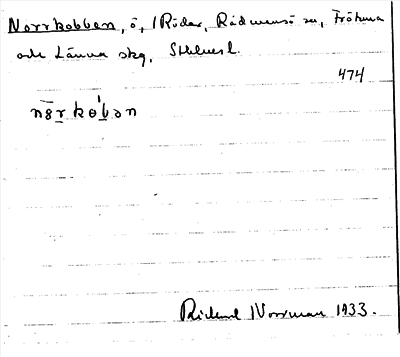 Norrkobben, ö, i Röder, Rådmansö sn, Frötuna
och Länna skg, Sthlms l.
474
Rickard Norrman 1933.